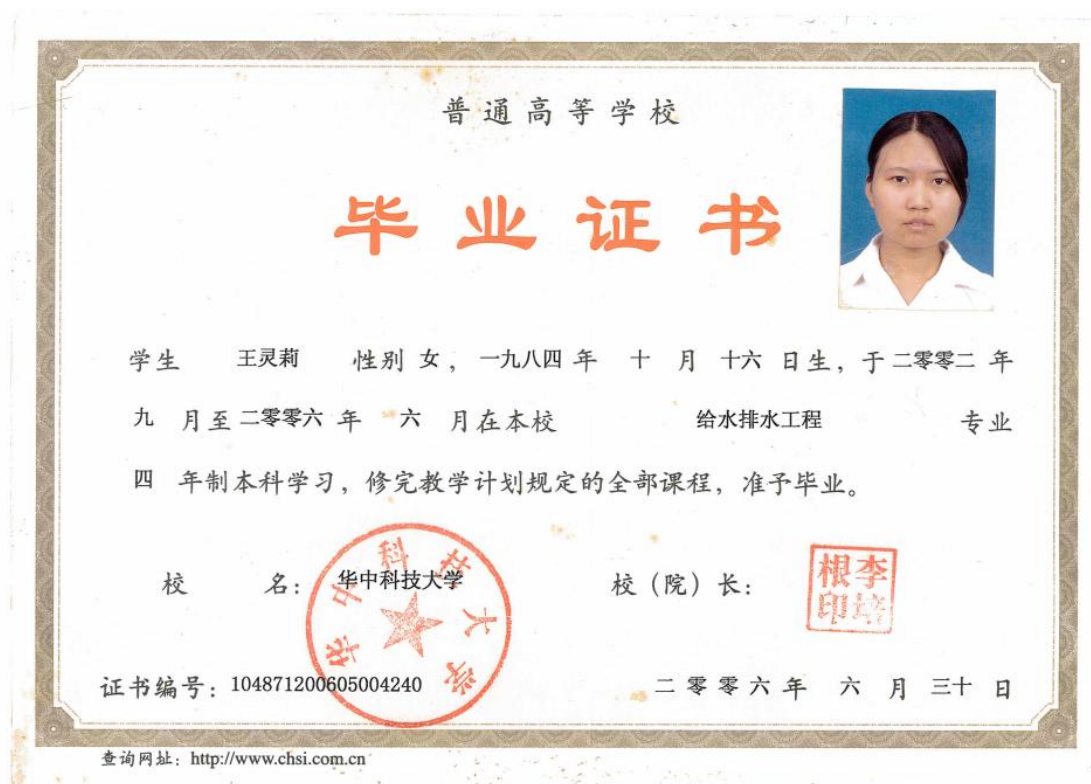 普通高等学校
毕业证书
学生 王灵莉 性别 女，一九八四 年 十 月 十六 日生，于 二零零二 年
九 月至 二零零六 年 六 月在本校 给水排水工程 专业
四 年制本科学习，修完教学计划规定的全部课程，准予毕业。
校 名：华中科技大学 校（院）长：
华中科技大学
李培根印
证书编号：104871200605004240 二零零六年 六 月 三十 日
查询网址：http://www.chsi.com.cn